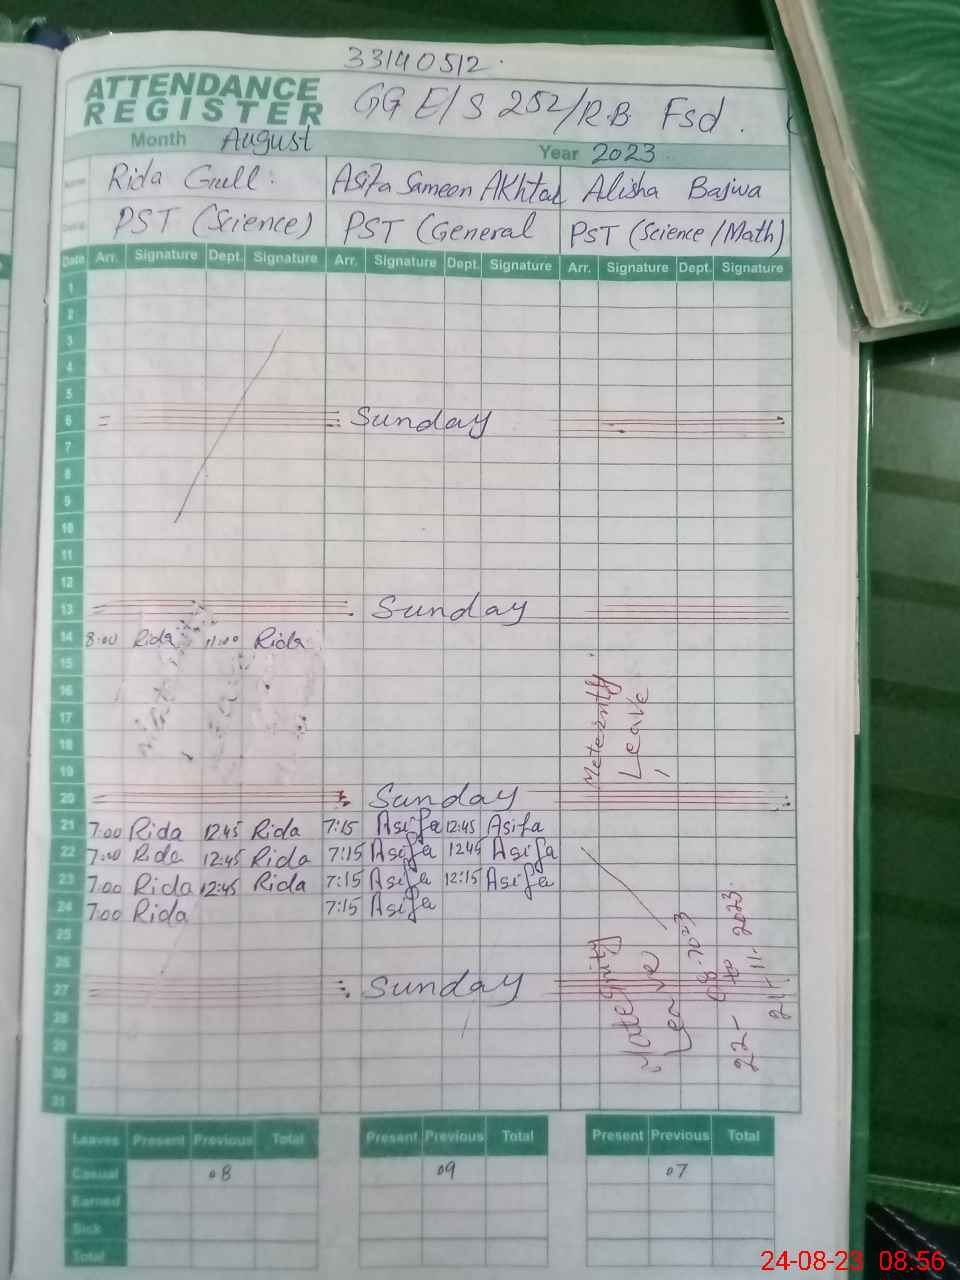 33140512.
ATTENDANCE REGISTER GGE/S 252/R.B Fsd.
Month August Year 2023
Rida Gull. Asifa Sameen Akhtar Alisha Bajwa
PST (Science) PST (General PST (Science/Math)
Date Arr. Signature Dept. Signature Arr. Signature Dept. Signature Arr. Signature Dept. Signature
1
2
3
4
5
6 Sunday
7
8
9
10
11
12
13 Sunday
14 8:00 Rida 11:00 Rida
15
16
17
18
19
Meternity
Leave
20 Sunday
21 7:00 Rida 12:45 Rida 7:15 Asifa 12:45 Asifa
22 7:00 Rida 12:45 Rida 7:15 Asifa 12:45 Asifa
23 7:00 Rida 12:45 Rida 7:15 Asifa 12:15 Asifa
24 7:00 Rida 7:15 Asifa
25
26
27 Sunday
28
29
30
31
Leave
22-08-2023
to
21-11-2023.
Leaves Present Previous Total Present Previous Total Present Previous Total
Casual 08 09 07
Earned
Sick
Total
24-08-23 08:56